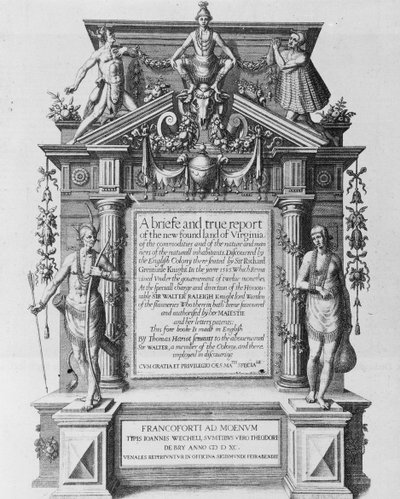 A briefe and true report
of the new found land of Virginia.
of the commodities and of the nature and man
ners of the naturall inhabitants. Discouered by
the English Colony there seated by Sir Richard
Greinuile Knight In the yeere 1585. Which Rema
ined Vnder the gouernement of twelue monethes,
At the speciall charge and direction of the Honou-
rable SIR WALTER RALEIGH Knight lord Warden
of the stanneries Who therein hath beene fauoured
and authorised by her MAIESTIE
and her letters patents:
This fore booke Is made in English
By Thomas Hariot seruant to the abouenamed
Sir WALTER, a member of the Colony, and there
imployed in discouering
CVM GRATIA ET PRIVILEGIO CÆS. MA.TIS SPECIALI
FRANCOFORTI AD MOENVM
TYPIS IOANNIS WECHELI, SVMTIBVS VERO THEODORI
DE BRY ANNO CIↃ IↃ XC.
VENALES REPERIVNTVR IN OFFICINA SIGISMVNDI FEIRABENDII